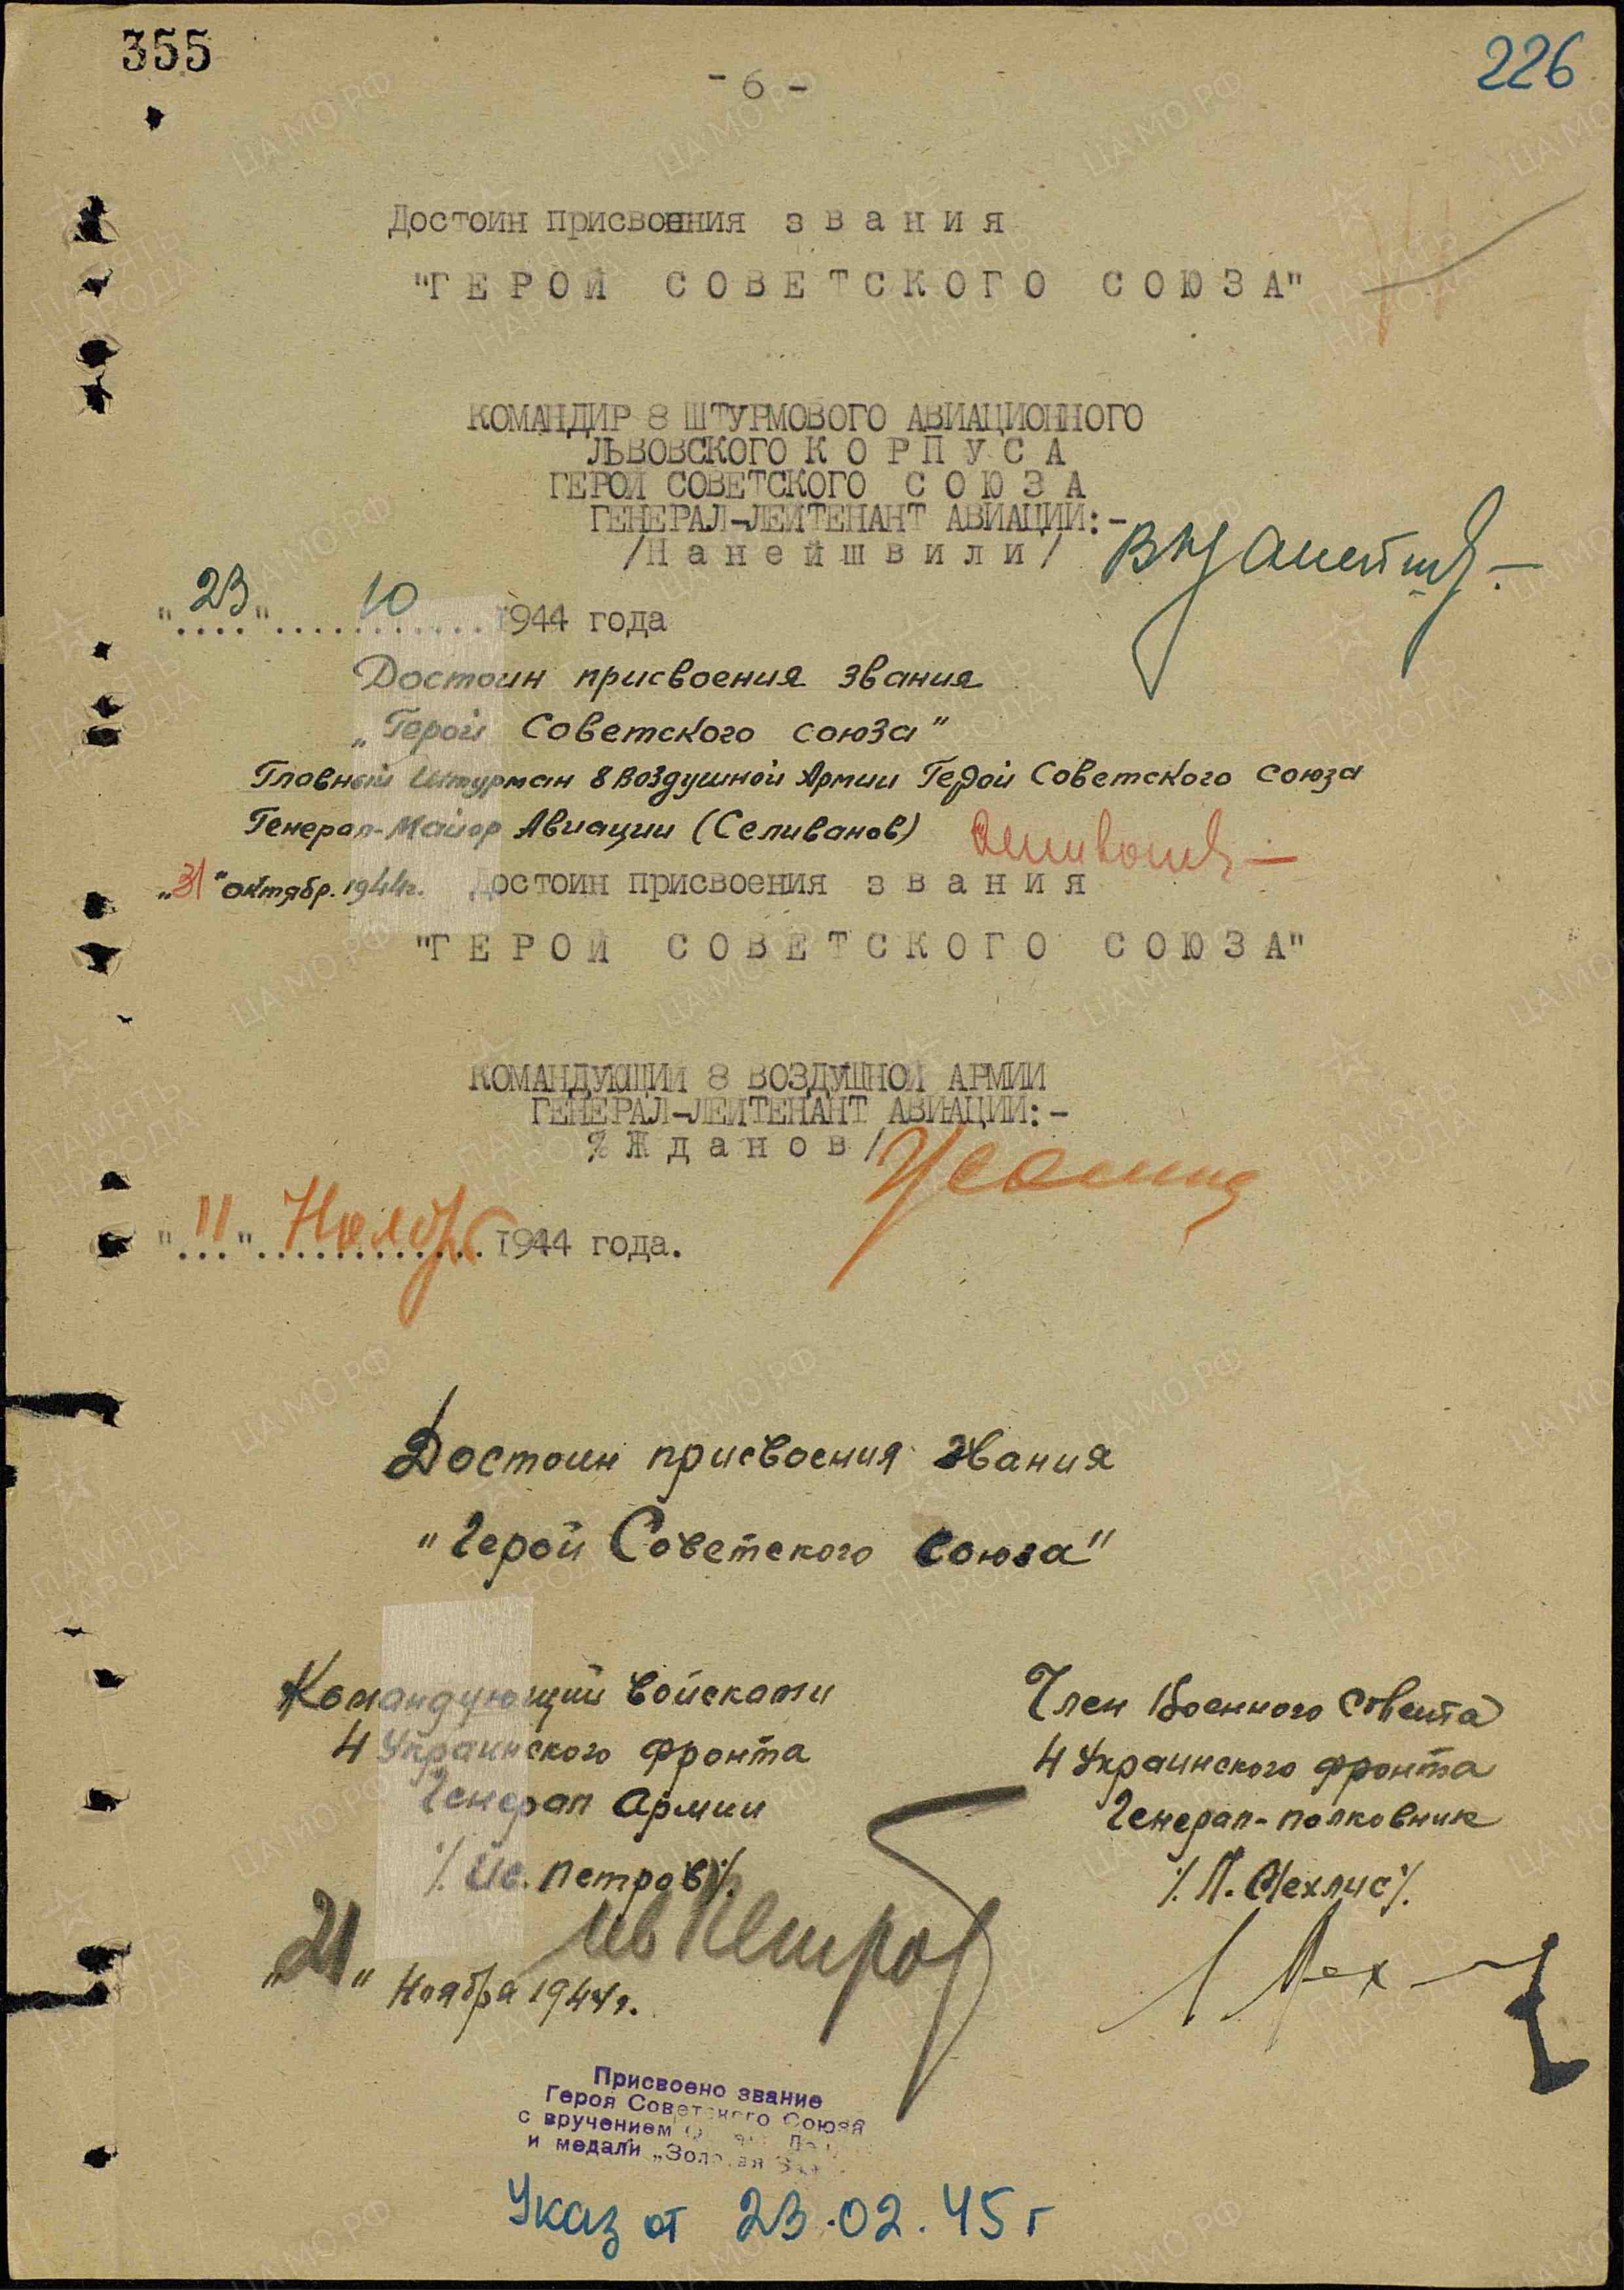 355
- 6 -
226
Достоин присвоения з в а н и я
"Г Е Р О Й С О В Е Т С К О Г О С О Ю З А"
КОМАНДИР 8 ШТУРМОВОГО АВИАЦИОННОГО
ЛЬВОВСКОГО К О Р П У С А
ГЕРОЙ СОВЕТСКОГО С О Ю З А
ГЕНЕРАЛ-ЛЕЙТЕНАНТ АВИАЦИИ:-
/Н а н е й ш в и л и /
"23" 10 1944 года
Достоин присвоения звания
„Герой Советского союза"
Главный Штурман 8 Воздушной Армии Герой Советского союза
Генерал-Майор Авиации (Селиванов)
„31" октябр. 1944г. Достоин присвоения з в а н и я
"Г Е Р О Й С О В Е Т С К О Г О С О Ю З А"
КОМАНДУЮЩИЙ 8 ВОЗДУШНОЙ АРМИИ
ГЕНЕРАЛ-ЛЕЙТЕНАНТ АВИАЦИИ:-
/ Ж д а н о в /
"11" Ноябр 1944 года.
Достоин присвоения звания
"Герой Советского союза"
Командующий войсками
4 Украинского фронта
Генерал Армии
/. Ив. Петров /.
Член Военного Совета
4 Украинского фронта
Генерал-полковник
/. Л. Мехлис /.
Ив Петров
„21" Ноября 1944 г.
Присвоено звание
Героя Советского Союза
с вручением
и медали „Золотая
Указ от 23.02.45 г
ЦА МО РФ
ПАМЯТЬ
НАРОДА